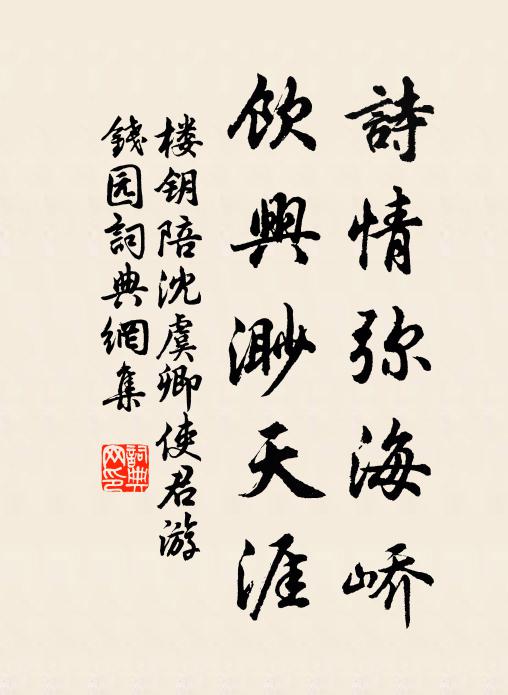 詩情弥海嶠
飲興渺天涯
楼钥陪沈虞卿使君游
錢园詞典網集
詞典网印